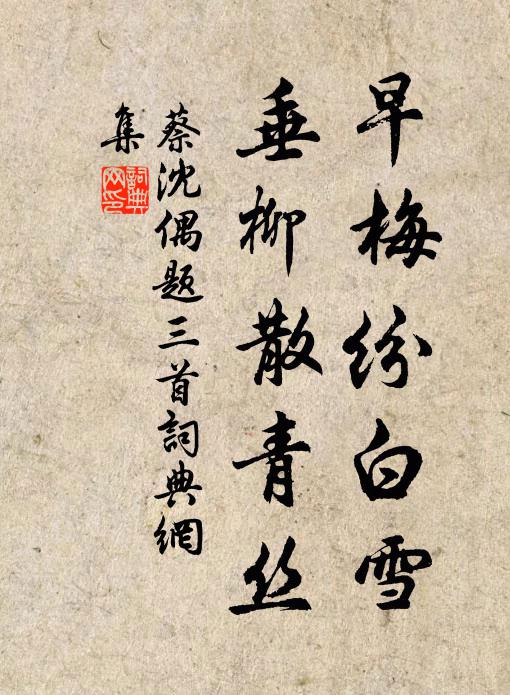 早梅纷白雪
垂柳散青丝
蔡沈偶题三首詞典網
集
詞典
网印